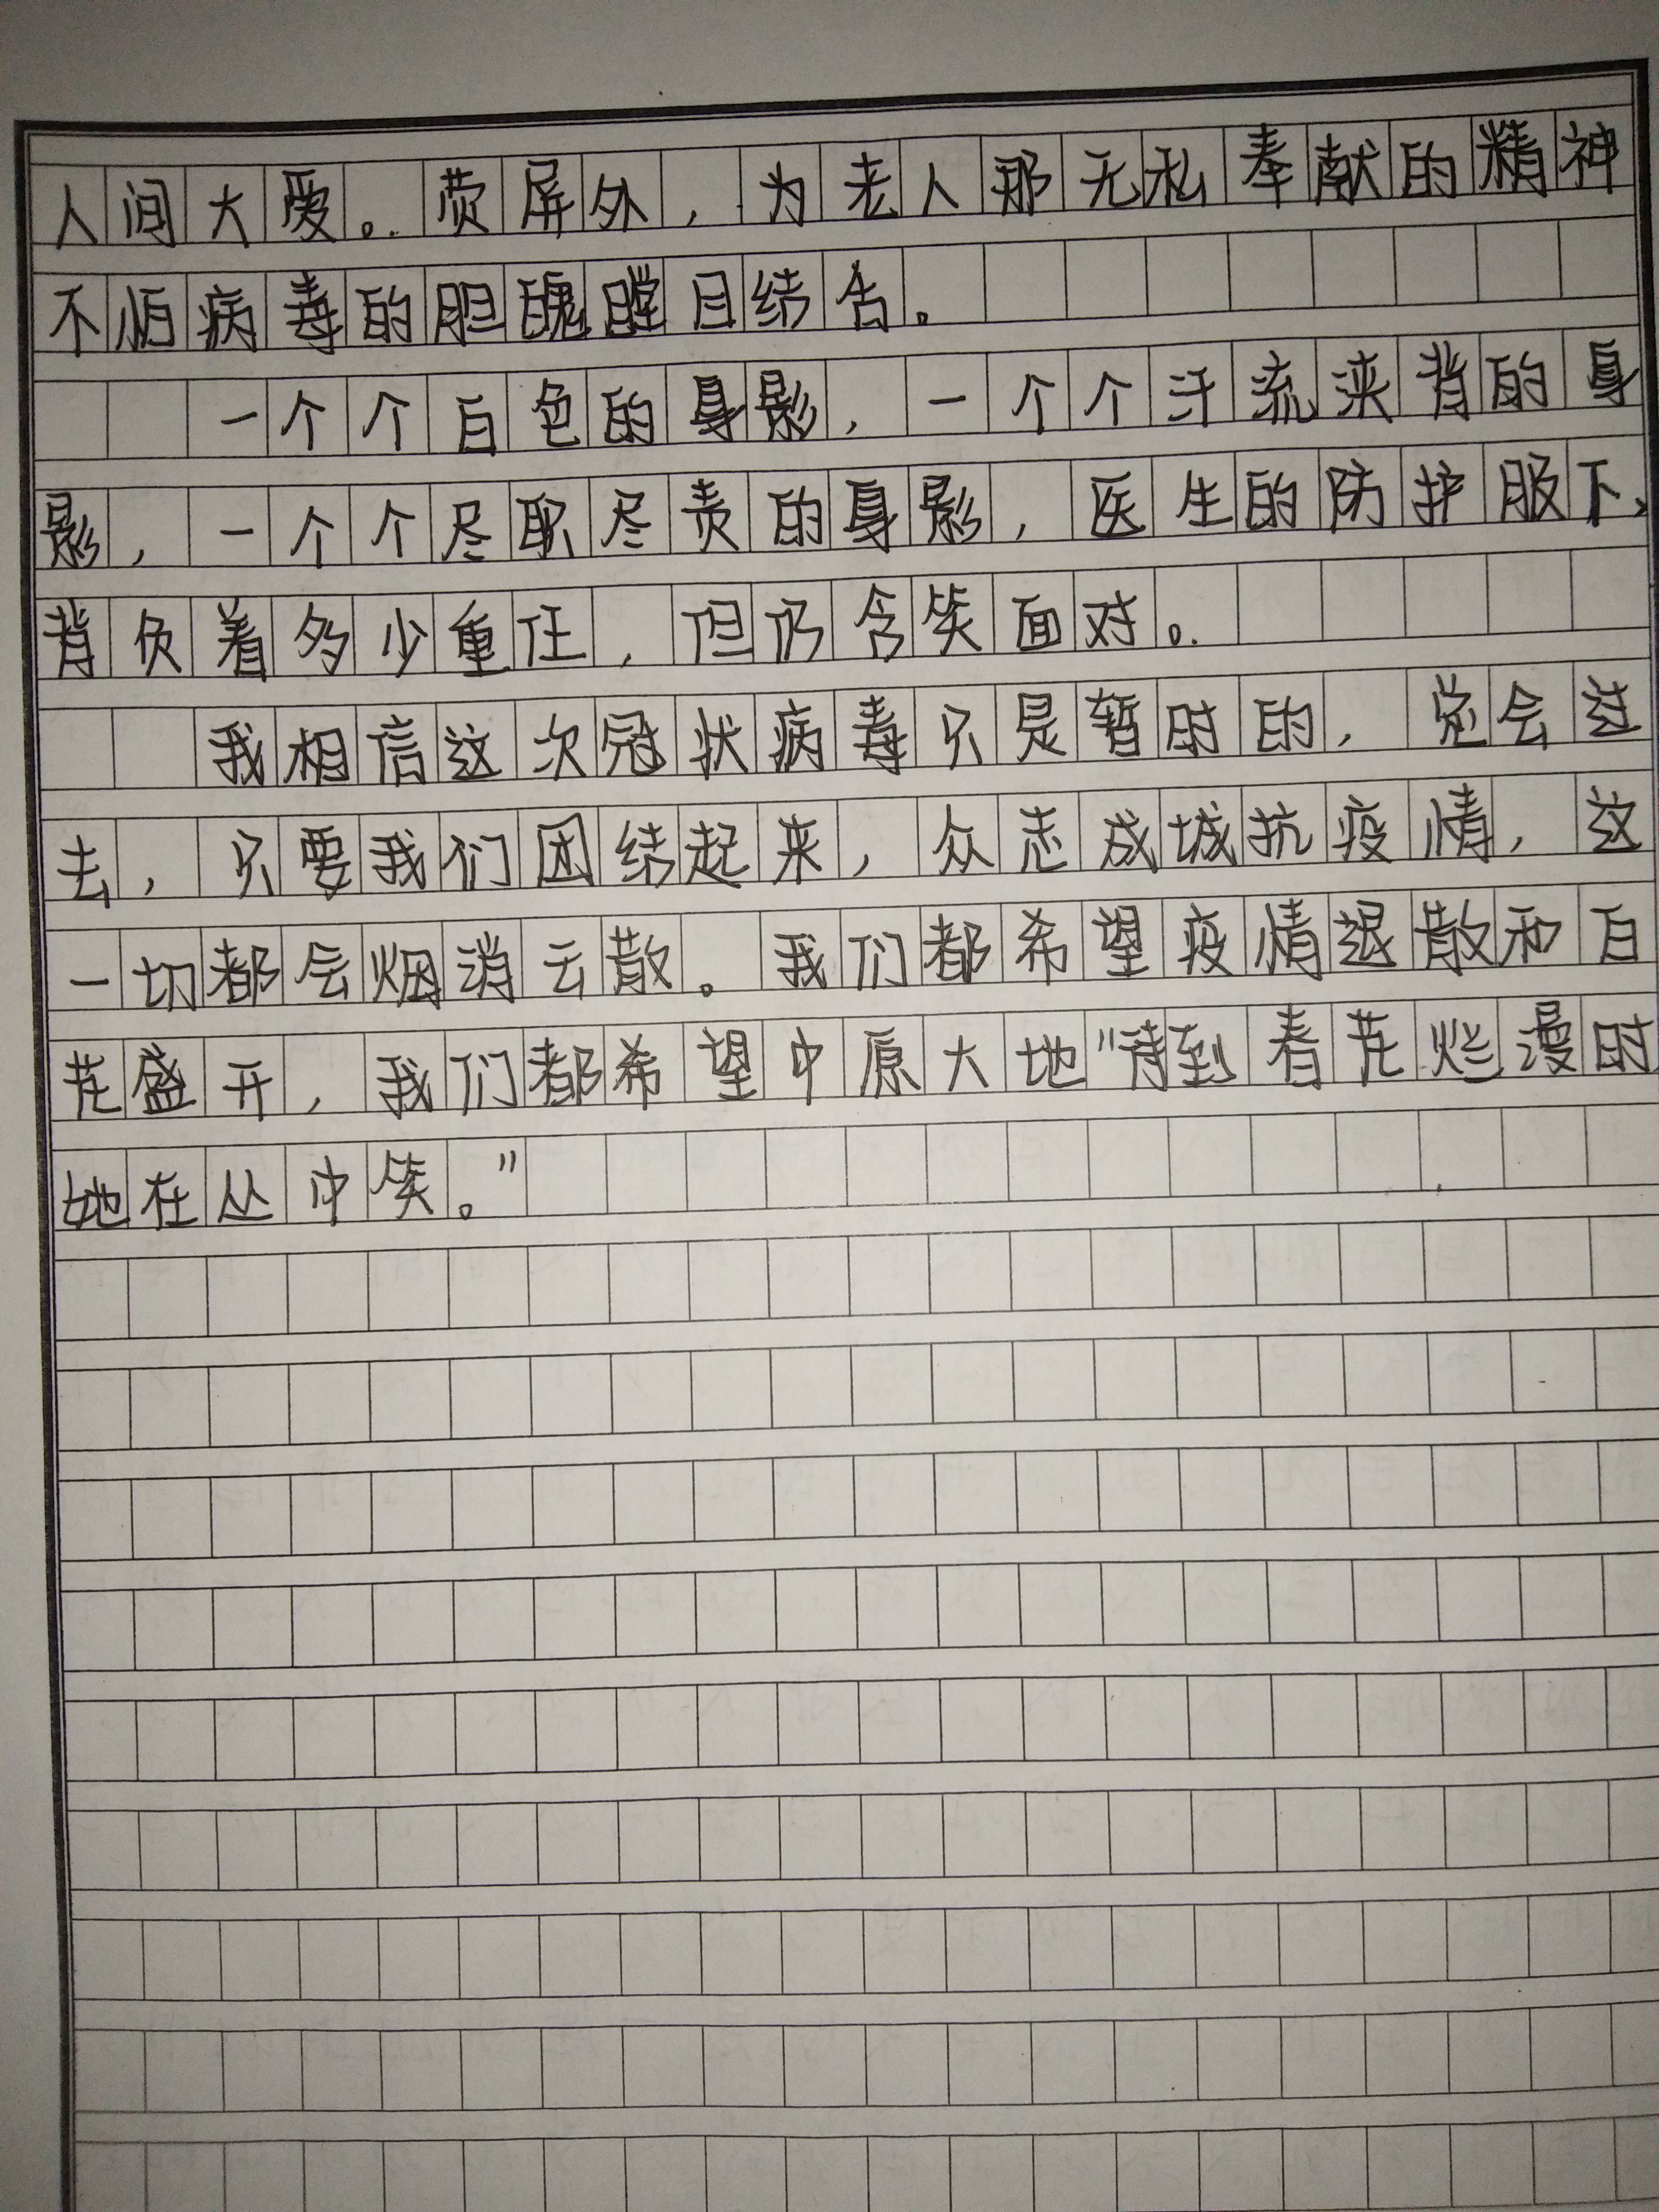 人间大爱。荧屏外，为老人那无私奉献的精神
不怕病毒的胆魄瞠目结舌。
一个个白色的身影，一个个汗流浃背的身
影，一个个尽职尽责的身影，医生的防护服下，
背负着多少重任，但仍含笑面对。
我相信这次冠状病毒只是暂时的，总会过
去，只要我们团结起来，众志成城抗疫情，这
一切都会烟消云散。我们都希望疫情退散和百
花盛开，我们都希望中原大地“待到春花烂漫时
她在丛中笑。”